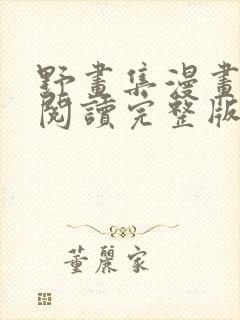 野畫集漫畫
閱讀完整版
董麗家